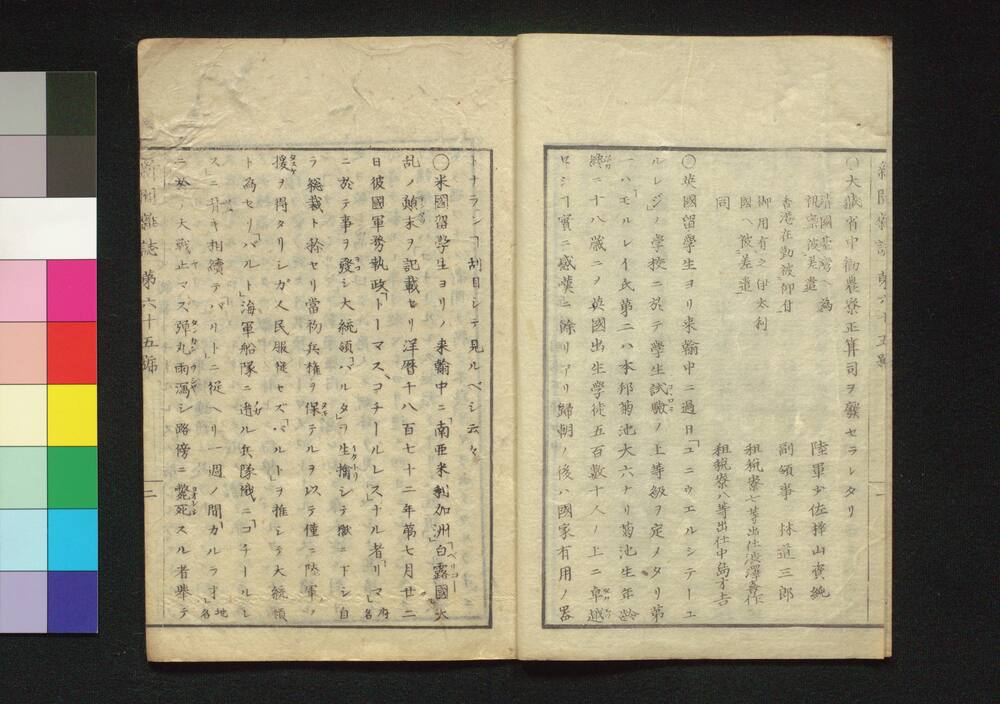 新聞雜誌 第六十五號
〇大藏省中勸農寮正算司ヲ廢セラレタリ
清國臺灣ヘ為
視察被差遣
陸軍少佐樺山資純
香港在勤被仰付
副領事 林道三郎
御用有之伊太利
國ヘ被差遣
租税寮七等出仕澁澤喜作
同
租税寮八等出仕中島才吉
〇英國留學生ヨリ来翰中ニ過日「ユニウエルシテーユ
ルレジ」ノ學校ニ於テ學生試驗ノ上等級ヲ定メタリ第
一ハ「モルレイ氏第二ハ本邦菊池大六ナリ菊池生年齡
纔ニ十八歳ニノ英國出生學徒五百數十人ノ上ニ卓越
ロシヿ實ニ感嘆ニ餘リアリ歸朝ノ後ハ國家有用ノ器
トナランヿ刮目シテ見ルベシ云々
〇米國留學生ヨリノ来翰中ニ「南亜米利加洲「白露國大
乱ノ顛末ヲ記載セリ洋曆千八百七十二年第七月廿二
日彼國軍務執政「トーマス、コチールレス」ナル者「リマ府名
ニ於テ事ヲ發シ大統領「バルタ」ヲ生擒シテ獄ニ下シ自
ラ総裁ト稱セリ當初兵權ヲ保テルヲ以テ僅ニ陸軍ノ
援ヲ得タリシガ人民服従セズ「バルト」ヲ推シテ大統領
ト為セリ「バルト」海軍船隊ニ遁ル兵隊戦ニ「コチールレ
ス」ニ背キ相續テ「バルト」ニ從ヘリ一週ノ間「カルラオ地名
ニ於テ大戦止マス彈丸雨瀉シ路傍ニ斃死スル者擧テ
新聞雜誌 第六十五號
二